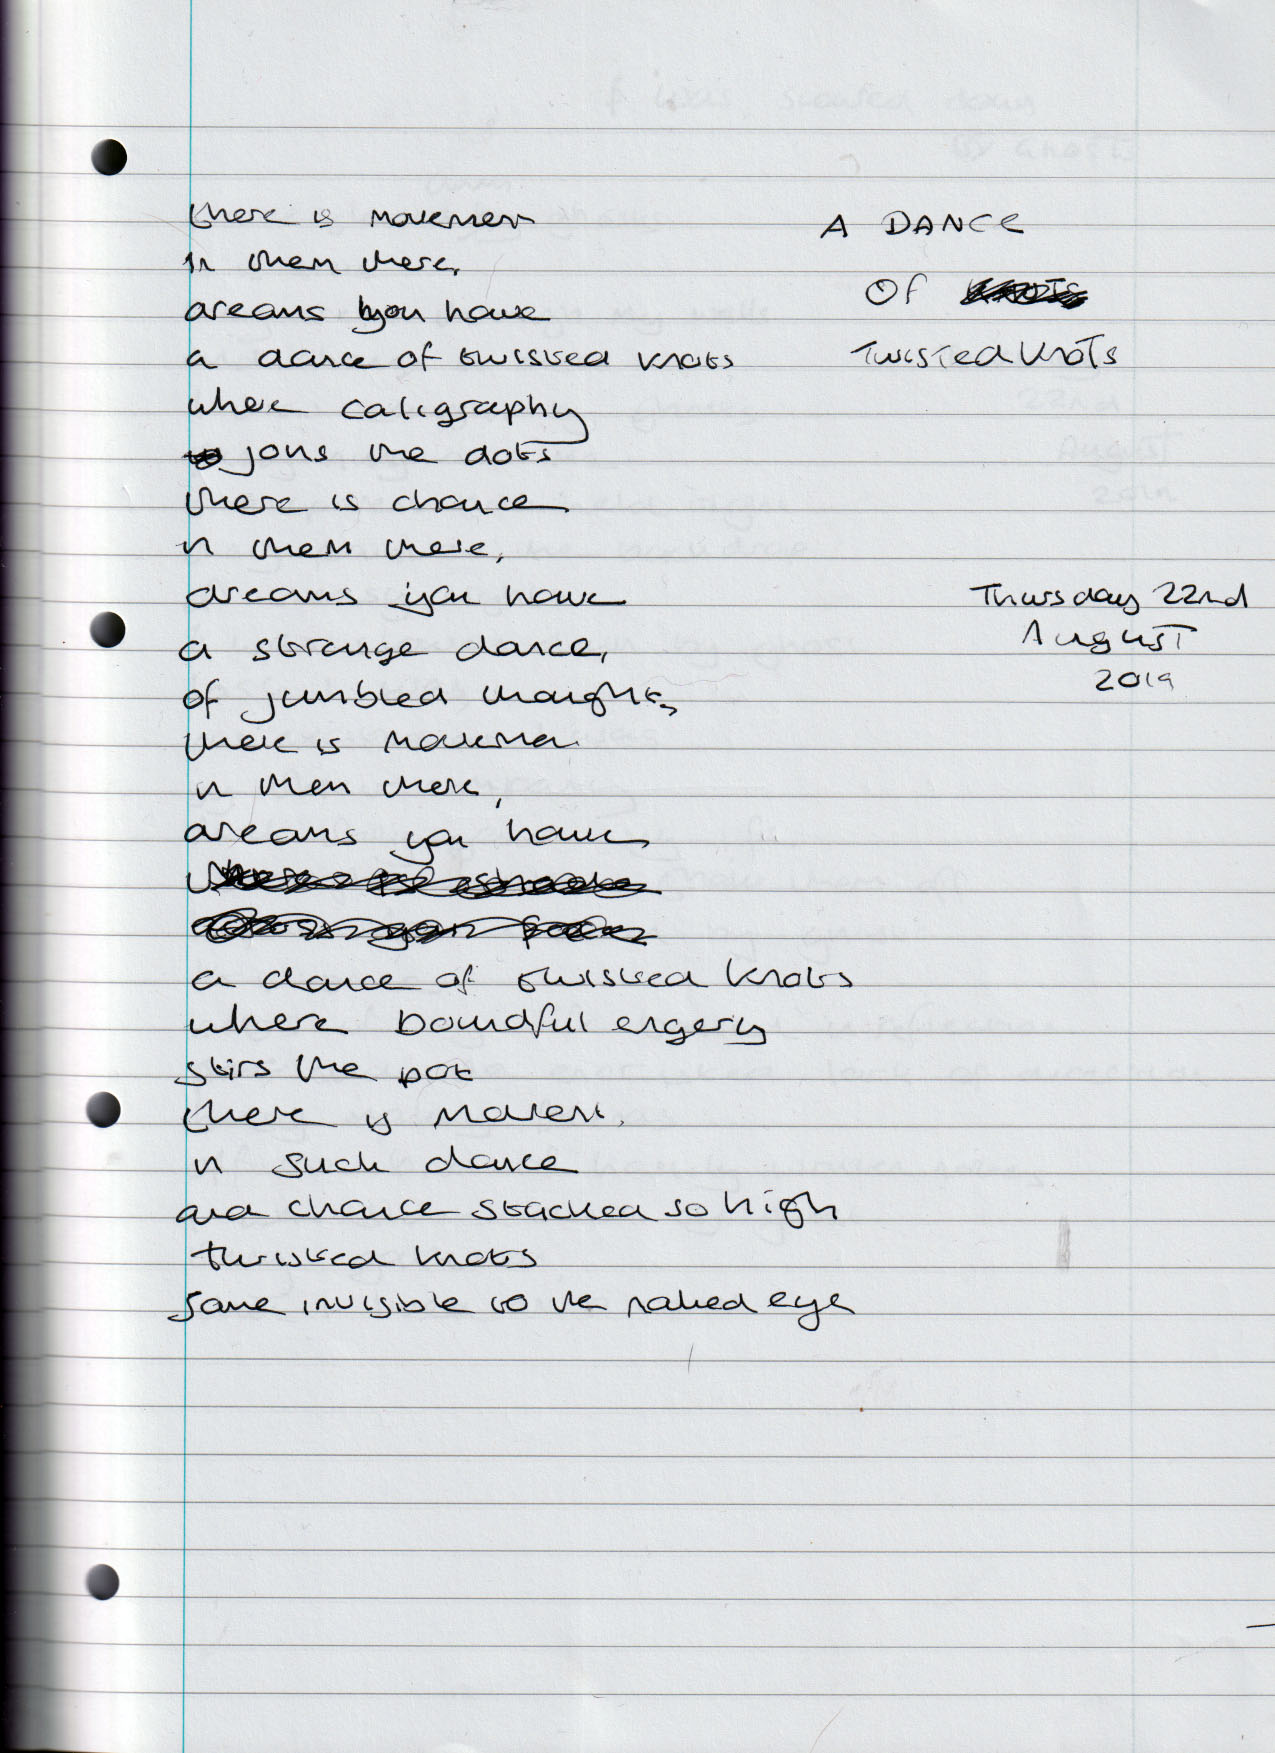 A DANCE
OF
TWISTED KNOTS
Thursday 22nd
August
2019
there is movement
in them there,
dreams you have
a dance of twisted knots
where caligraphy
joins the dots
there is chance
in them there,
dreams you have
a strange dance,
of jumbled thoughts,
there is movemen
in them there,
dreams you have
a dance of twisted knots
where boundful engery
stirs the pot
there is movent
in such dance
and chance stacked so high
twisted knots
some invisible to the naked eye